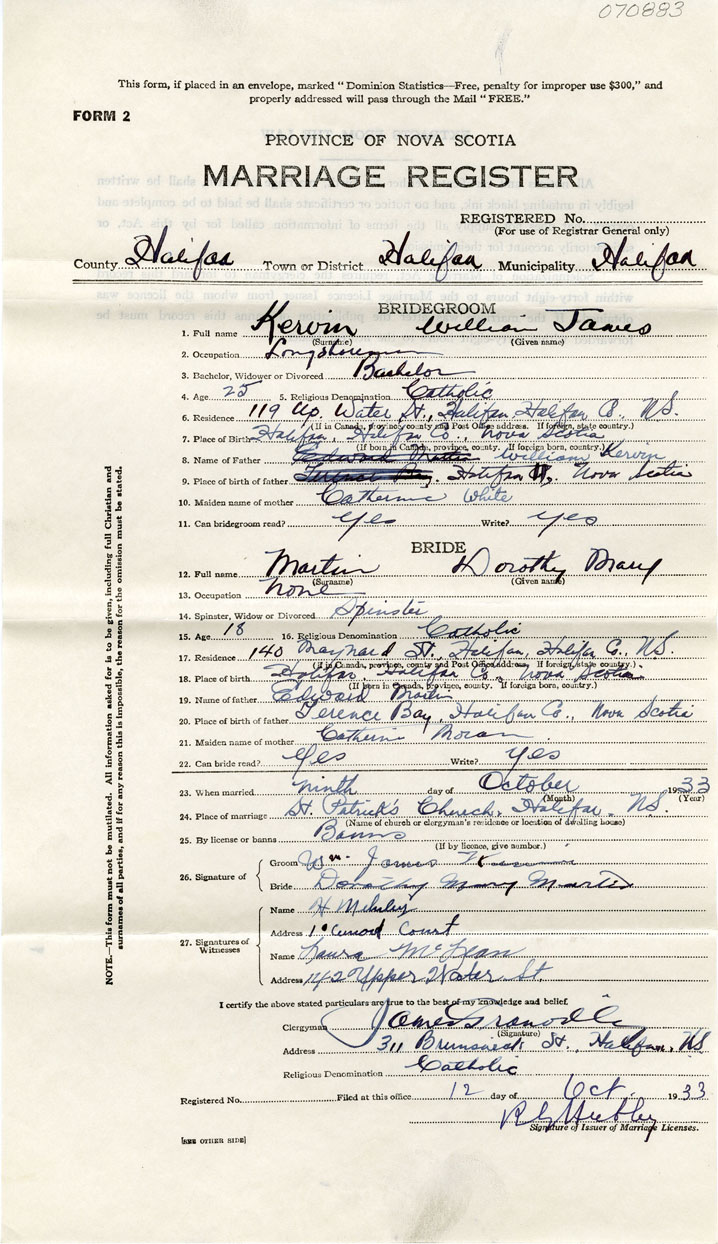 070883
This form, if placed in an envelope, marked "Dominion Statistics—Free, penalty for improper use $300," and
properly addressed will pass through the Mail "FREE."
FORM 2
PROVINCE OF NOVA SCOTIA
MARRIAGE REGISTER
REGISTERED No.
(For use of Registrar General only)
County Halifax Town or District Halifax Municipality Halifax
BRIDEGROOM
1. Full name Kervin William James
(Surname) (Given name)
2. Occupation Longshoreman
3. Bachelor, Widower or Divorced Bachelor
4. Age 25 5. Religious Denomination Catholic
6. Residence 119 Up. Water St., Halifax, Halifax Co. N.S.
(If in Canada, province, county and Post Office address. If foreign, state country.)
7. Place of Birth Halifax, Halifax Co., Nova Scotia
(If born in Canada, province, county. If foreign born, country.)
8. Name of Father William Kervin
9. Place of birth of father Halifax Nova Scotia
10. Maiden name of mother Catherine White
11. Can bridegroom read? Yes Write? Yes
BRIDE
12. Full name Martin Dorothy Mary
(Surname) (Given name)
13. Occupation None
14. Spinster, Widow or Divorced Spinster
15. Age 18 16. Religious Denomination Catholic
17. Residence 140 Maynard St., Halifax, Halifax Co., N.S.
(If in Canada, province, county and Post Office address. If foreign, state country.)
18. Place of birth Halifax, Halifax Co., Nova Scotia
(If born in Canada, province, county. If foreign born, country.)
19. Name of father Edward Martin
20. Place of birth of father Terence Bay, Halifax Co., Nova Scotia
21. Maiden name of mother Catherine Moran
22. Can bride read? Yes Write? Yes
23. When married ninth day of October 1933
(Month) (Year)
24. Place of marriage St. Patrick's Church, Halifax, N.S.
(Name of church or clergyman's residence or location of dwelling house)
25. By license or banns Banns
(If by licence, give number.)
26. Signature of
Groom Wm. James
Bride Dorothy Mary Martin
27. Signatures of Witnesses
Name H
Address Court
Name Laura McLean
Address 142 Upper Water St
I certify the above stated particulars are true to the best of my knowledge and belief.
Clergyman James
(Signature)
Address 311 Brunswick St., Halifax, N.S.
Religious Denomination Catholic
Registered No. Filed at this office 12 day of Oct. 1933
Signature of Issuer of Marriage Licenses.
[SEE OTHER SIDE]
NOTE.—This form must not be mutilated. All information asked for is to be given, including full Christian and
surnames of all parties, and if for any reason this is impossible, the reason for the omission must be stated.